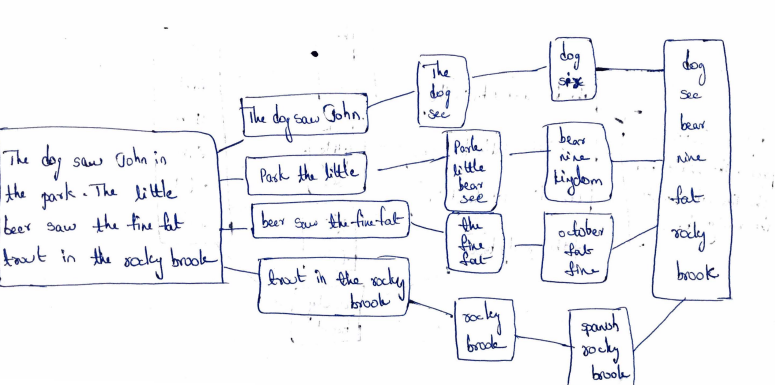 The dog saw John in
the park. The little
beer saw the fine fat
trout in the rocky brook
The dog saw John.
Park the little
beer saw the fine-fat
trout in the rocky
brook
The
dog
sec
Park
little
bear
see
the
fine
fat
rocky
brook
dog
six
bear
nine
kingdom
october
fat
fine
spanish
rocky
brook
dog
sec
bear
nine
fat
rocky
brook